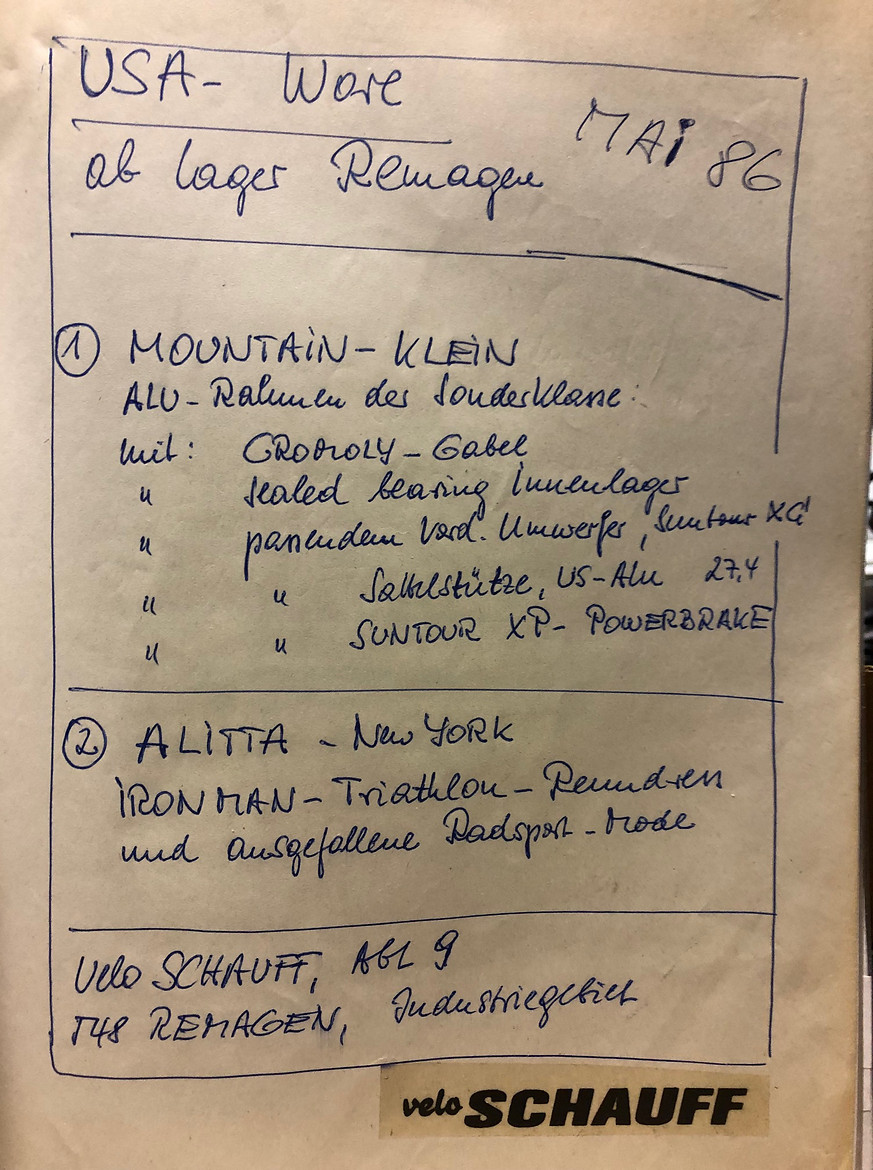 USA- Ware
MAi 86
ab Lager Remagen
1 MOUNTAiN - KLEiN
ALU - Rahmen der Sonderklasse:
mit: CROMOLY - Gabel
" sealed bearing Innenlager
" passendem Vord. Umwerfer, Suntour XC
" " Sattelstütze, US-Alu 27,4
" " SUNTOUR XP- POWERBRAKE
2 ALiTTA - New YORK
iRONMAN - Triathlon - Renndress
und ausgefallene Radsport - Mode
Velo SCHAUFF, Abt 9
548 REMAGEN, Industriegebiet
velo SCHAUFF